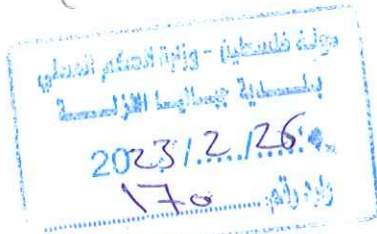 دولة فلسطين - وزارة الحكم المحلي
بلدية جباليا النزلة
2023/2/26
وارد رقم ١٧٥